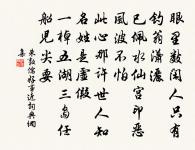 眼里數閑人只有
釣翁瀟灑
已佩水仙宮印惡
風波不怕
此心那許世人知
名姓是虛假
一棹五湖三島任
船兒尖耍
朱敦儒好事近詞典網
集